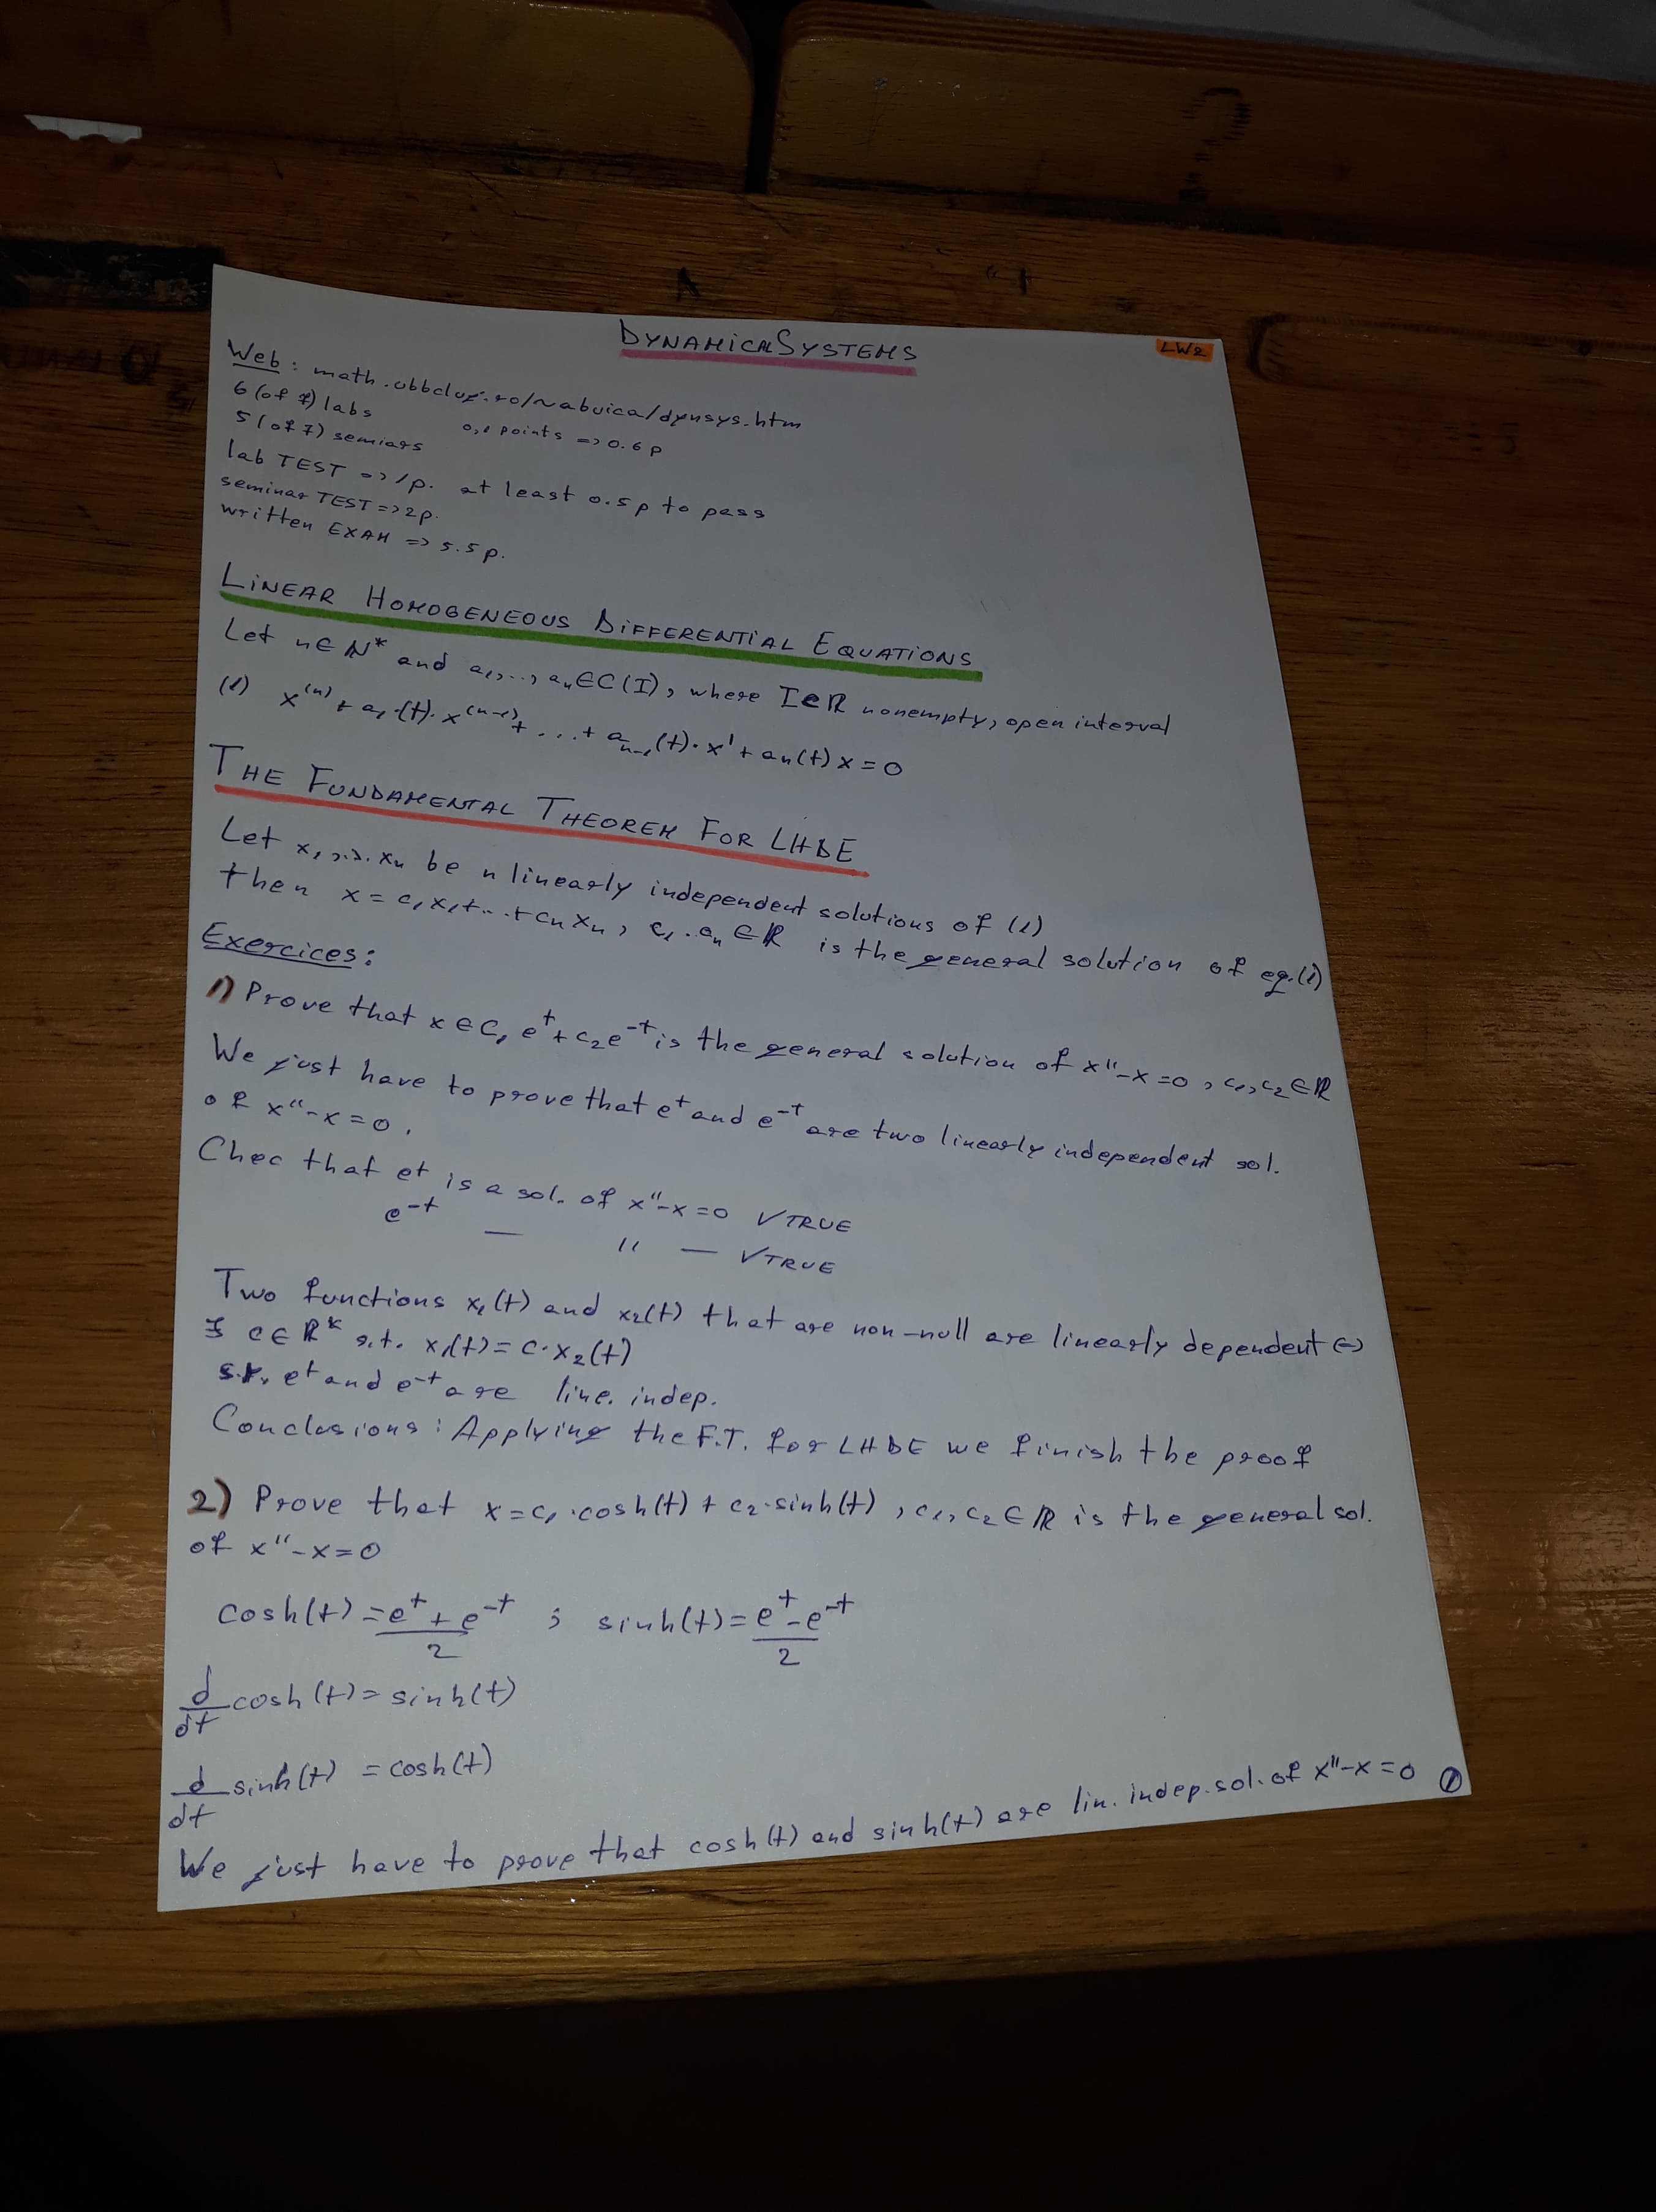 DYNAMICAL SYSTEMS
LW2
Web: math.ubbcluj.ro/~abuica/dynsys.htm
6 (of 7) labs
0,1 points => 0.6 p
5 (of 7) semiars
lab TEST => 1p. at least 0.5 p to pass
seminar TEST => 2p.
written EXAM => 5.5 p.
LINEAR HOMOGENEOUS DIFFERENTIAL EQUATIONS
Let n∈N* and a₁,..., aₙ∈C(I), where I⊂R nonempty, open interval
(1) x⁽ⁿ⁾ + a₁·(t)·x⁽ⁿ⁻¹⁾ + ... + aₙ₋₁(t)·x' + aₙ(t)x = 0
THE FUNDAMENTAL THEOREM FOR LHDE
Let x₁,... xₙ be n linearly independent solutions of (1)
then x = c₁x₁+...+cₙxₙ, c₁..cₙ∈R is the general solution of eq.(1)
Exercices:
1) Prove that x∈C₁e^t + c₂e^-t is the general solution of x''-x=0, c₁,c₂∈R
We just have to prove that e^t and e^-t are two linearly independent sol.
of x''-x=0.
Chec that et is a sol. of x''-x=0 √TRUE
e^-t — '' — √TRUE
Two functions x₁(t) and x₂(t) that are non-null are linearly dependent (=)
∃ c∈R* s.t. x₁(t) = c·x₂(t)
e^t and e^-t are line. indep.
Conclusions: Applying the F.T. for LHDE we finish the proof
2) Prove that x=c₁·cosh(t) + c₂·sinh(t), c₁,c₂∈R is the general sol.
of x''-x=0
cosh(t) = (e^t + e^-t)/2 ; sinh(t) = (e^t - e^-t)/2
d/dt cosh(t) = sinh(t)
d/dt sinh(t) = cosh(t)
We just have to prove that cosh(t) and sinh(t) are lin. indep. sol. of x''-x=0 ①